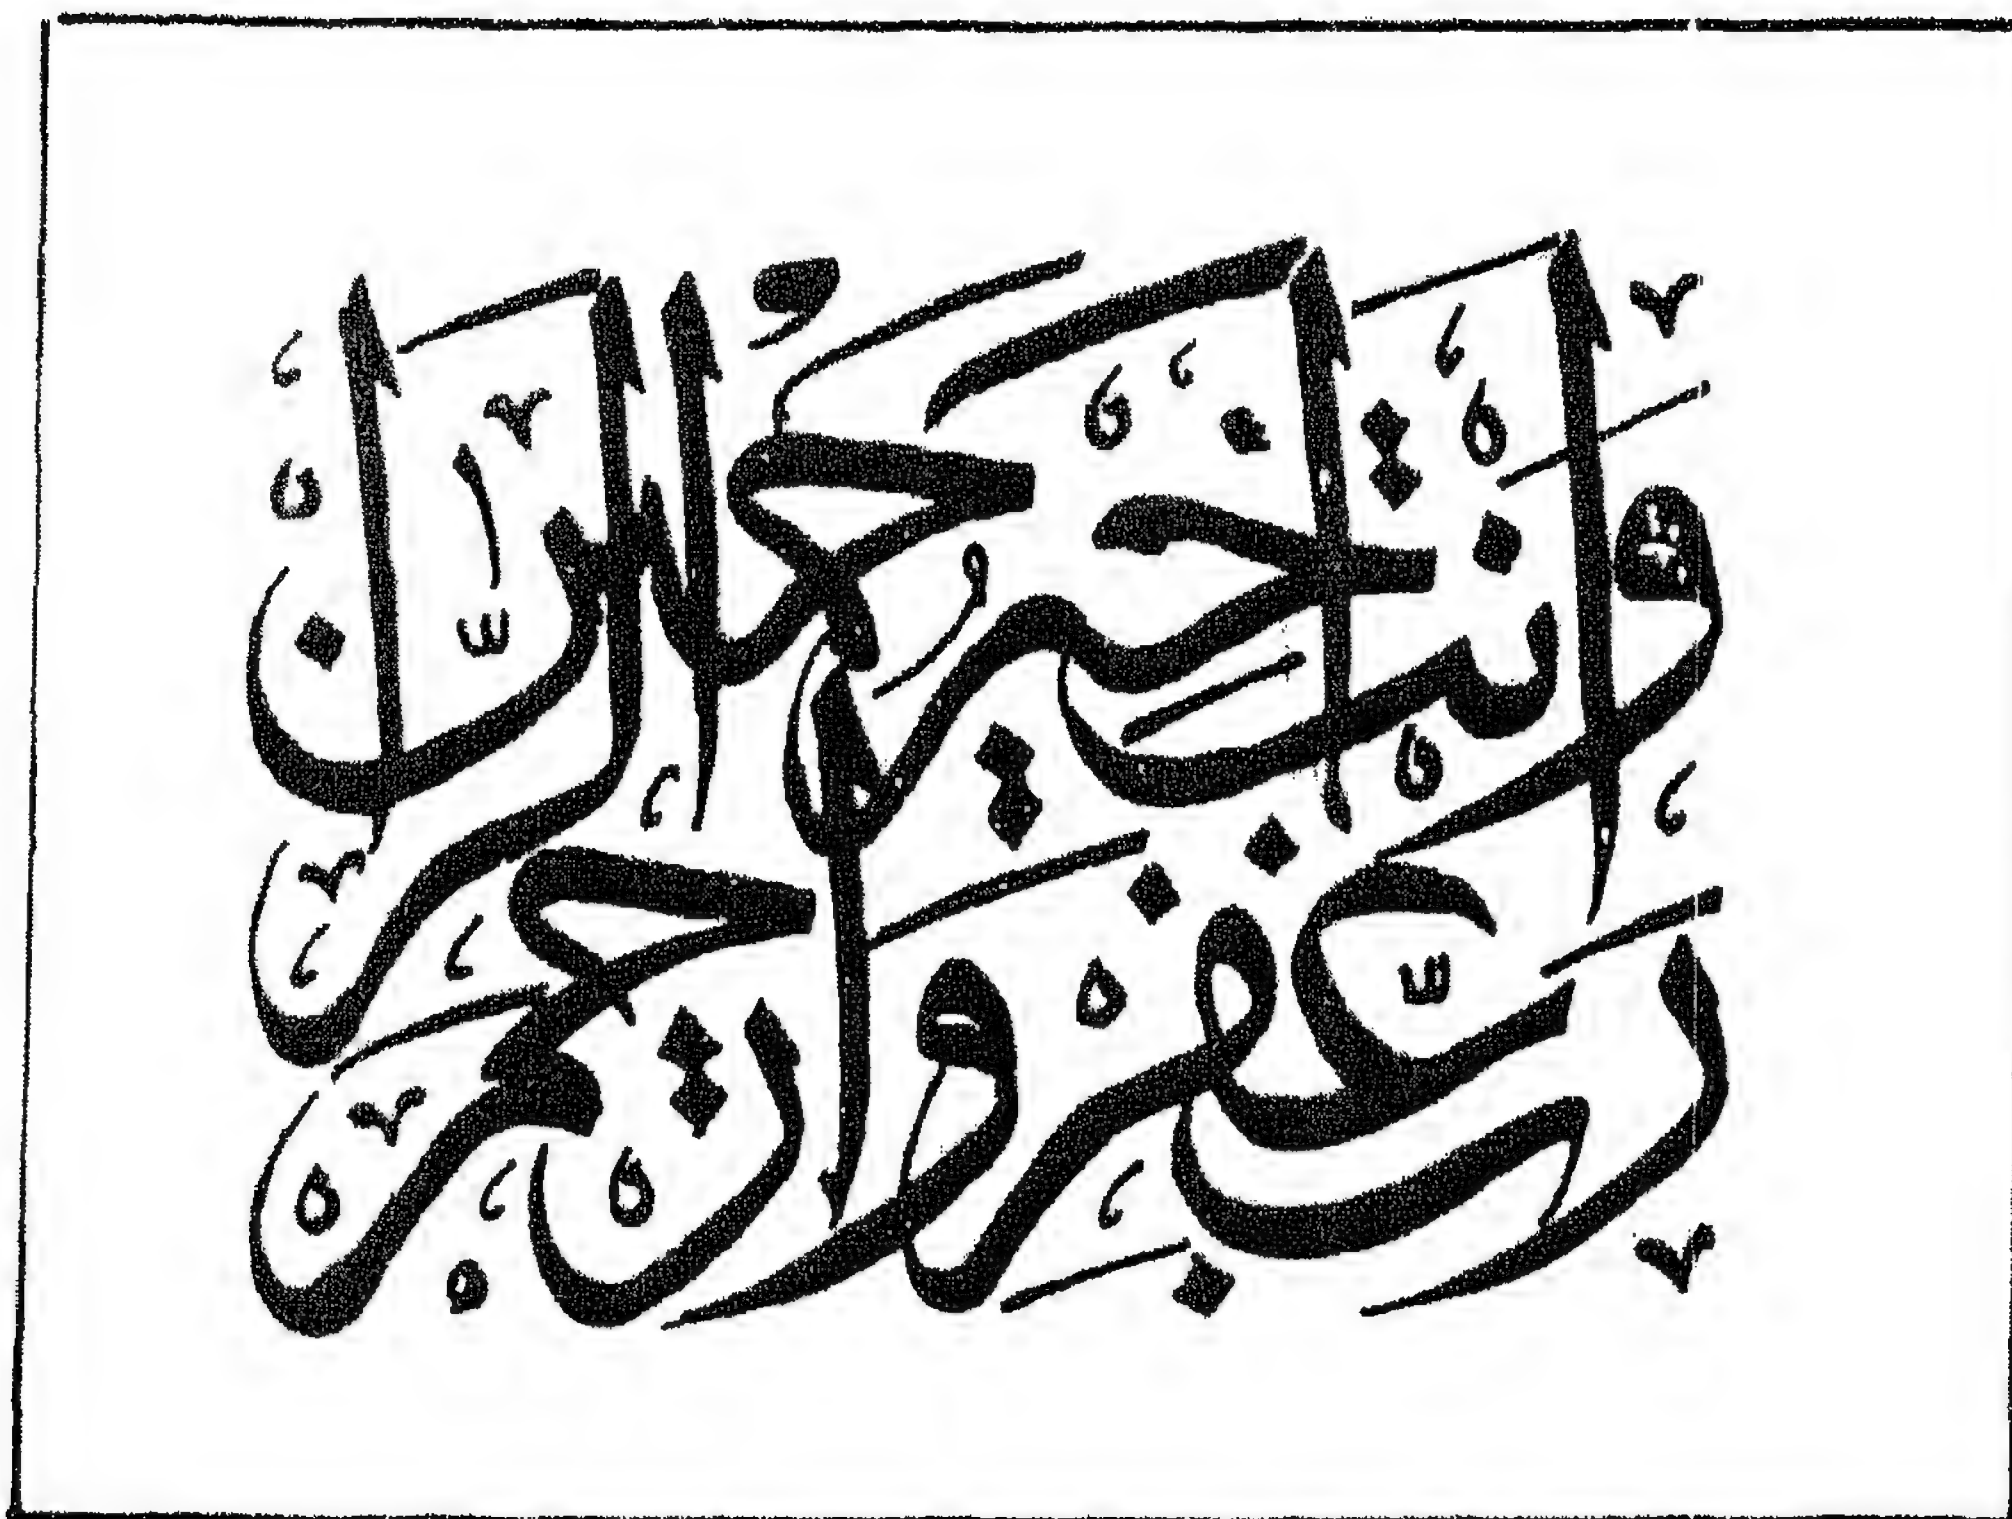 رب اغفر وارحم
وانت خير الراحمين